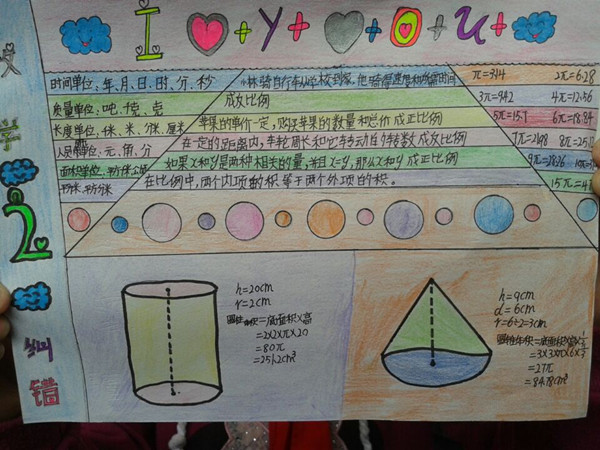 I y O U
学
2
错
时间单位:年、月、日、时、分、秒
质量单位:吨、千克、克
人民币单位:元、角、分
小林骑自行车从学校到家,他骑得速度和所需时间
成反比例
苹果的单价一定,购买苹果的数量和总价成正比例
在一定的距离内,车轮周长和它转动的转数成反比例
如果x和y是两种相关的量,并且x=y,那么x和y成正比例
在比例中,两个内项的积等于两个外项的积。
π=3.14 2π=6.28
3π=9.42 4π=12.56
5π=15.7 6π=18.84
7π=21.98 8π=25.12
9π=28.26
h=20cm
r=2cm
圆柱体积=底面积×高
=2×2×π×20
=80π
=251.2cm³
h=9cm
d=6cm
r=6÷2=3cm
圆锥体积=底面积×高×1/3
=27π
=84.78cm³